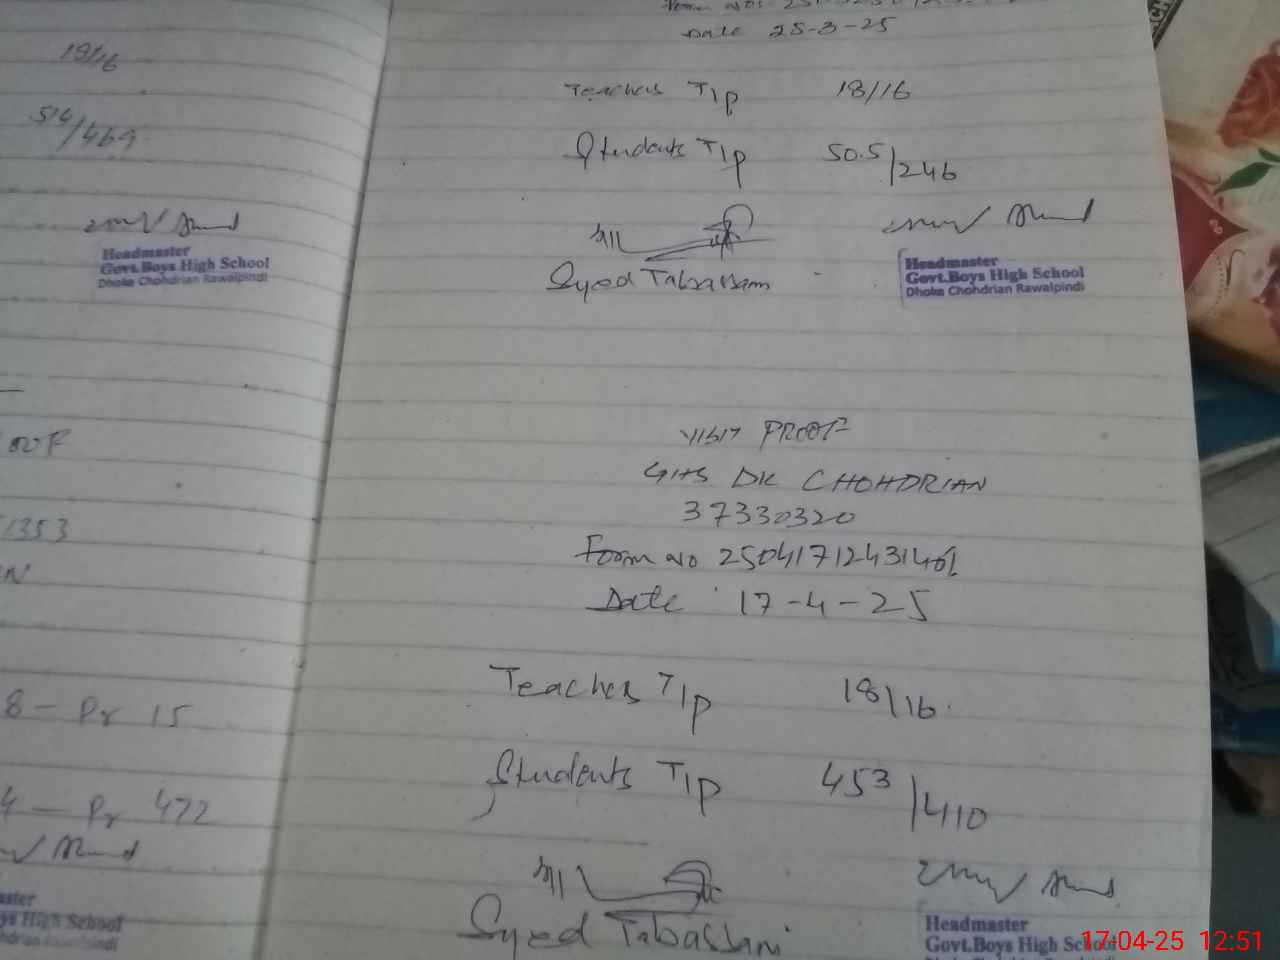 18/16
514/469
Headmaster
Govt.Boys High School
Dhoke Chohdrian Rawalpindi
1353
8 - Pr 15
4 - Pr 472
ys High School
hdrian Rawalpindi
Date 25-3-25
Teachers T/p 18/16
Students T/p 505/246
Syed Tabassam
Headmaster
Govt.Boys High School
Dhoke Chohdrian Rawalpindi
VISIT PROOF
GHS DK CHOHDRIAN
37330320
Form no
Date 17-4-25
Teachers T/p 18/16
Students T/p 453/410
Syed Tabassam
Headmaster
Govt.Boys High School
17-04-25 12:51